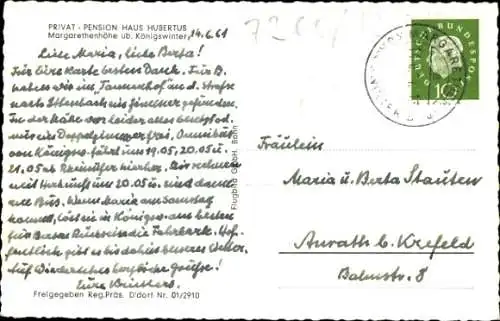 PRIVAT - PENSION HAUS HUBERTUS
Margarethenhöhe üb. Königswinter, 14.6.61
Liebe Maria, liebe Berta!
Für Eure Karte besten Dank. Für B.
haben wir im "Tannenhof" an d. Straße
nach Ittenbach ein Zimmer gefunden.
In der Nähe war leider alles besetzt od.
nur ein Doppelzimmer frei, Omnibus
von Königsw. fährt um 19.05, 20.05 u.
21.05 ab Rheinufer hierher. Wir rechnen
mit Herkunft um 20.05 u. sind dann
am Bus. Wenn Maria am Samstag
kommt, löst sie in Königsw. am besten
für Bertas Rückreise die Fahrkarte. Hof-
fentlich gibt es bis dahin besseres Wetter.
Auf Wiedersehen herzliche Grüße!
Eure
Freigegeben Reg. Präs. D'dorf Nr. 01/2910
Flugbild GmbH. Bonn
DEUTSCHE BUNDESPOST
10
Fräulein
Maria u. Berta Stauten
Anrath b. Krefeld